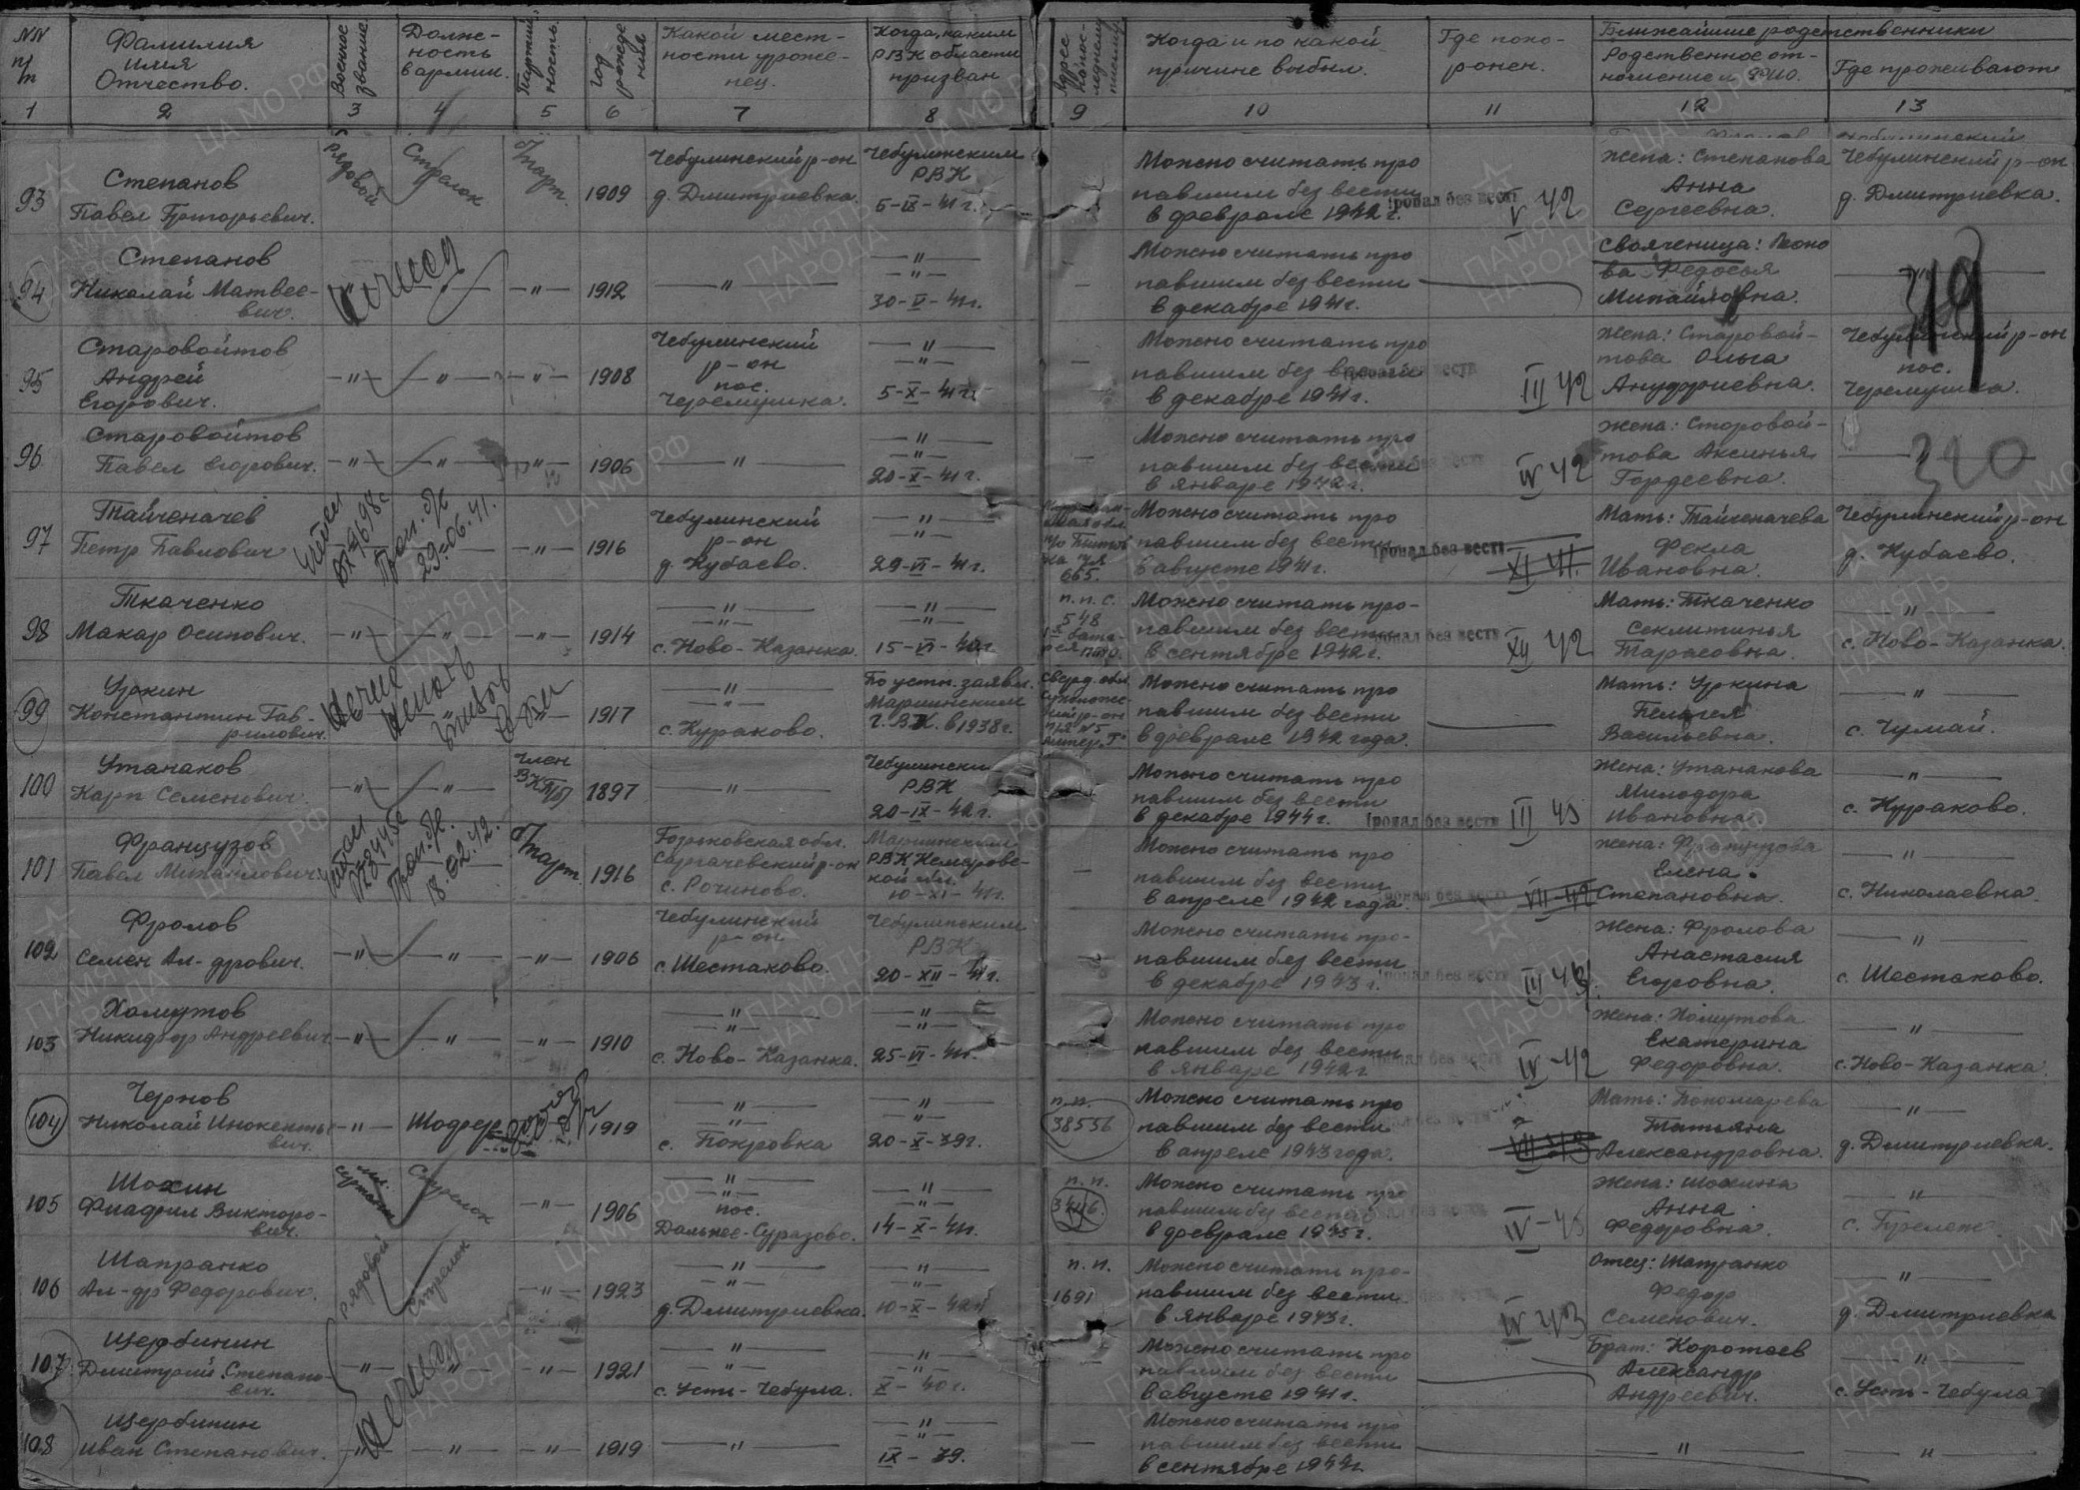 NN п/п
Фамилия Имя Отчество.
Военное звание.
Долж-ность в армии.
Партий-ность.
Год рождения
Какой мест-ности уроже-нец.
Когда, каким РВК области призван
Адрес
Когда и по какой причине выбыл.
Где похо-ронен.
Ближайшие родственники
Родственное от-ношение и ФИО.
Где проживают
1 2 3 4 5 6 7 8 9 10 11 12 13
93 Степанов Павел Григорьевич. рядовой Стрелок б/парт. 1909 Чебулинский р-он д. Дмитриевка. Чебулинским РВК 5-IX-41 г. Можно считать про павшим без вести в феврале 1942 г. Пропал без вести V 42 Жена: Степанова Анна Сергеевна. Чебулинский р-он д. Дмитриевка.
94 Степанов Николай Матвее-вич. -"- 1912 -"- -"- -"- 30-V-41г. - Можно считать про павшим без вести в декабре 1941г. Свояченица: Леоно ва Федосья Михайловна. 319
95 Старовойтов Андрей Егорович. -"- -"- -"- 1908 Чебулинский р-он пос. Черемушка. -"- -"- 5-X-41г. - Можно считать про павшим без вести в декабре 1941г. III 42 Жена: Старовой-това Ольга Ануфриевна. Чебулинский р-он пос. Черемушка.
96 Старовойтов Павел Егорович. -"- -"- -"- 1906 -"- -"- -"- 20-X-41г. - Можно считать про павшим без вести в январе 1942г. IV 42 Жена: Старовой-това Аксинья Гордеевна. 320
97 Тайченачев Петр Павлович 29.06.41. -"- 1916 Чебулинский р-он д. Кубаево. -"- -"- 29-VI-41г. 665. Можно считать про павшим без вести в августе 1941г. Пропал без вести XI 41. Мать: Тайченачева Фекла Ивановна. Чебулинский р-он д. Кубаево.
98 Ткаченко Макар Осипович. -"- -"- -"- 1914 -"- -"- с. Ново-Казанка. -"- -"- 15-VI-40г. п.п.с. 548 Можно считать про-павшим без вести в сентябре 1942г. Пропал без вести XII 42 Мать: Ткаченко Секлитинья Тарасовна. -"- с. Ново-Казанка.
99 Уркин Константин Гав-рилович. 1917 -"- -"- с. Кураково. По устн. заявл. Мариинским Г.В.К. в 1938г. Сверд. обл. Можно считать про павшим без вести в феврале 1942 года. Мать: Уркина Пелагея Васильевна. -"- с. Чумай.
100 Утанаков Карп Семенович. -"- -"- член ВКП/б/ 1897 -"- Чебулински РВК 20-IX-42г. Можно считать про павшим без вести в декабре 1944г. Пропал без вести III 45 Жена: Утанакова Милодора Ивановна. -"- с. Кураково.
101 Французов Павел Михайлович. 18.02.42. б/парт. 1916 Горьковская обл. Сергачевский р-он с. Рочиново. Мариинским РВК Кемеровс-кой обл. 10-XI-41г. - Можно считать про павшим без вести в апреле 1942 года. VII-42 Жена: Французова Елена Степановна. -"- с. Николаевка.
102 Фролов Семен Ал-дрович. -"- -"- -"- 1906 Чебулинский р-он с. Шестаково. Чебулинским РВК 20-XII-41г. - Можно считать про-павшим без вести в декабре 1943г. Жена: Фролова Анастасия Егоровна. -"- с. Шестаково.
103 Хомутов Никифор Андреевич. -"- -"- -"- 1910 -"- -"- с. Ново-Казанка. -"- -"- 25-VI-41г. Можно считать про павшим без вести в январе 1942г IV-42 Жена: Хомутова Екатерина Федоровна. -"- с. Ново-Казанка.
104 Чернов Николай Инокентье вич. -"- Шофер 1919 -"- -"- с. Покровка -"- -"- 20-X-39г. п.п. 38556 Можно считать про павшим без вести в апреле 1943 года. Мать: Пономарева Татьяна Александровна. -"- д. Дмитриевка.
105 Шохин Фиафил Викторо-вич. мл. сержант Стрелок -"- 1906 -"- -"- пос. Дальнее-Суразово. -"- -"- 14-X-41г. п.п. Можно считать про павшим без вести в феврале 1945г. IV-45 Жена: Шохина Анна Федоровна. -"-
106 Шапранко Ал-др Федорович. рядовой Стрелок -"- 1923 -"- -"- д. Дмитриевка. -"- -"- 10-X-42г п.п. 1691 Можно считать про-павшим без вести в январе 1943г. IV 43 Отец: Шапранко Федор Семенович. -"- д. Дмитриевка
107 Щербинин Дмитрий Степано-вич. -"- -"- -"- 1921 -"- -"- с. Усть-Чебула. -"- -"- X-40г. - Можно считать про павшим без вести в августе 1941г. Брат: Коротаев Александр Андреевич. -"- с. Усть-Чебула
108 Щербинин Иван Степанович. -"- -"- -"- 1919 -"- -"- -"- IX-39. - Можно считать про павшим без вести в сентябре 1944г. -"- -"-
ЦА МО РФ
ПАМЯТЬ НАРОДА